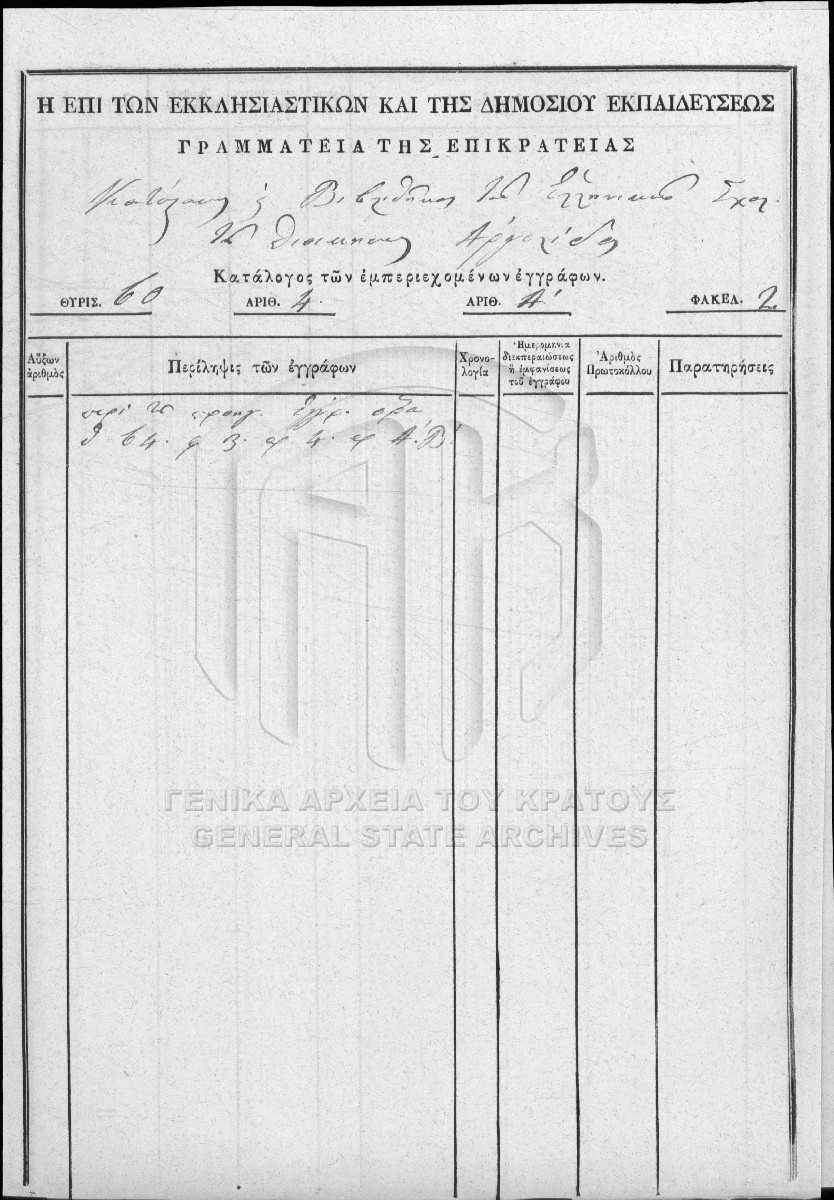 Η ΕΠΙ ΤΩΝ ΕΚΚΛΗΣΙΑΣΤΙΚΩΝ ΚΑΙ ΤΗΣ ΔΗΜΟΣΙΟΥ ΕΚΠΑΙΔΕΥΣΕΩΣ
ΓΡΑΜΜΑΤΕΙΑ ΤΗΣ ΕΠΙΚΡΑΤΕΙΑΣ
Ἑλληνικοῦ Σχολ.
Ἀργολίδος
Κατάλογος τῶν ἐμπεριεχομένων ἐγγράφων.
ΘΥΡΙΣ. 60 ΑΡΙΘ. 4. ΑΡΙΘ. Α' ΦΑΚΕΛ. 2
Αὔξων ἀριθμὸς
Περίληψις τῶν ἐγγράφων
Χρονολογία
Ἡμερομηνία διεκπεραιώσεως ἢ ἐμφανίσεως τοῦ ἐγγράφου
Ἀριθμὸς Πρωτοκόλλου
Παρατηρήσεις
περὶ τῶν προηγ. ἐγγρ. ὅρα
64. φ 3. φ 4. φ Α'. Β'.
ΓΕΝΙΚΑ ΑΡΧΕΙΑ ΤΟΥ ΚΡΑΤΟΥΣ
GENERAL STATE ARCHIVES